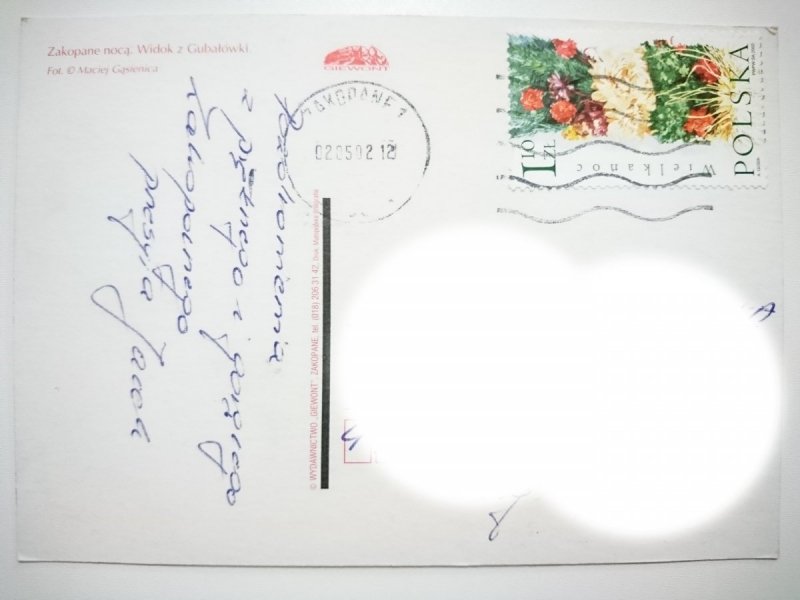 Zakopane nocą. Widok z Gubałówki.
Fot. © Maciej Gąsienica
GIEWONT
ZAKOPANE 1
020502 12
1,10 ZŁ
Wielkanoc
POLSKA
Pozdrowienia
z pięknego i
Zakopanego
przesyła
Jacek
© WYDAWNICTWO „GIEWONT” ZAKOPANE, tel. (018) 206 31 42,